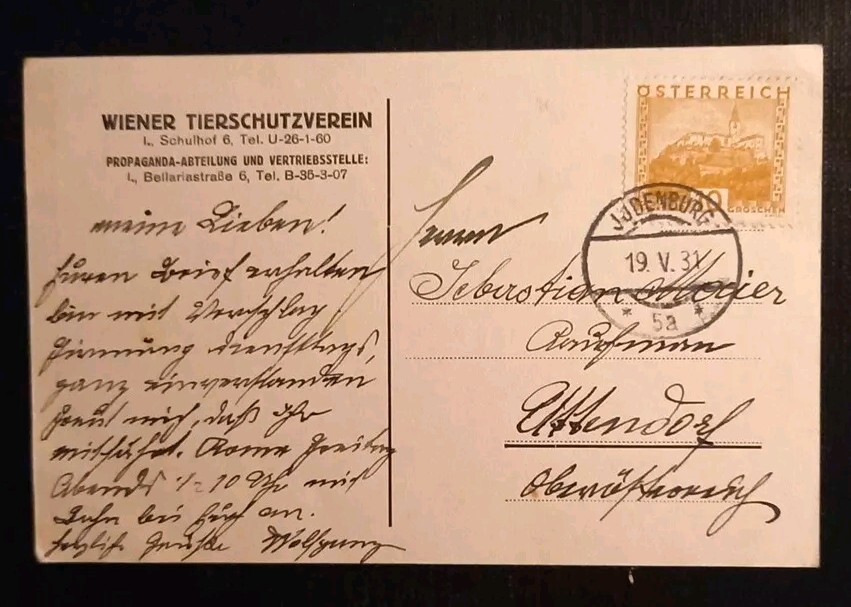 WIENER TIERSCHUTZVEREIN
I., Schulhof 6, Tel. U-26-1-60
PROPAGANDA-ABTEILUNG UND VERTRIEBSSTELLE:
I., Bellariastraße 6, Tel. B-35-3-07
meine Lieben!
Euren Brief erhalten
bin mit Vorschlag
Firmung Dienstags,
ganz einverstanden
freut mich, daß Ihr
mitfährt. Komme Freitag
Abends ½ 10 Uhr mit
Bahn bei Euch an.
herzliche Grüße Wolfgang
ÖSTERREICH
GROSCHEN
JUDENBURG
19. V. 31
* 5a *
Herrn
Sebastian Maier
Kaufman
Attendorf
Oberösterreich